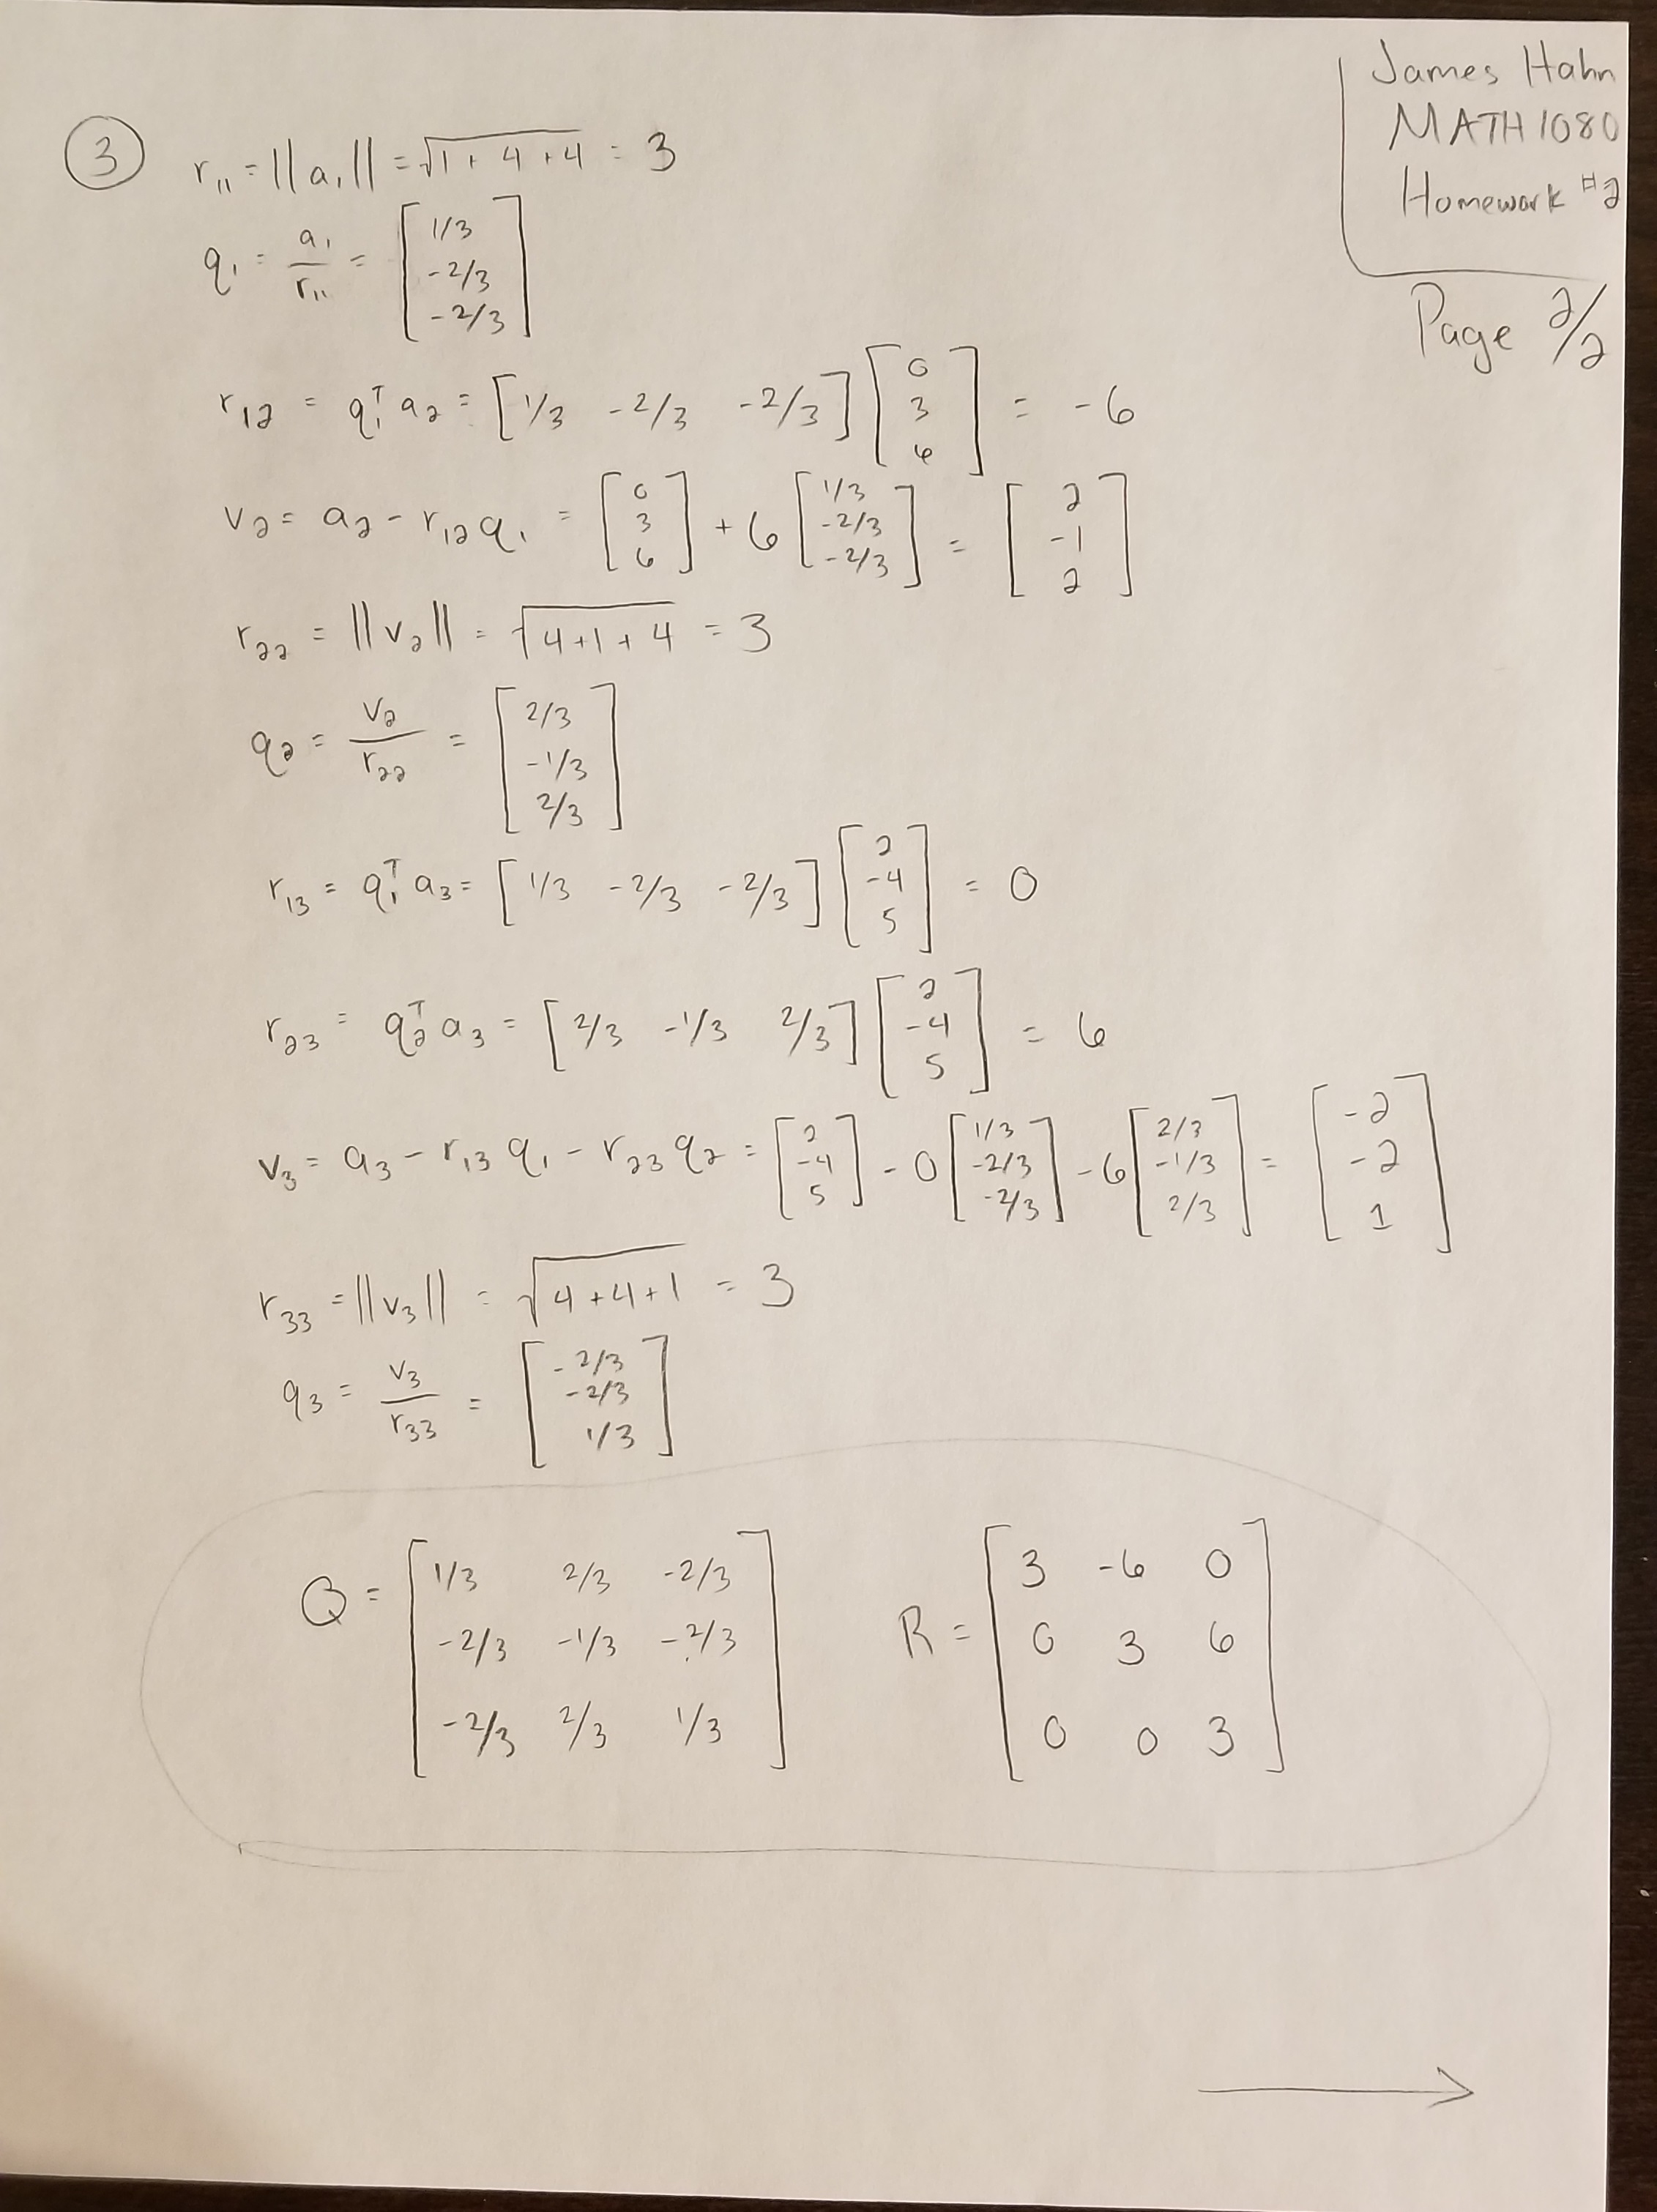 James Hahn
MATH 1080
Homework #2
Page 2/2
③ r₁₁ = ||a₁|| = √(1 + 4 + 4) = 3
q₁ = a₁/r₁₁ = [1/3; -2/3; -2/3]
r₁₂ = q₁ᵀ a₂ = [1/3 -2/3 -2/3] [0; 3; 6] = -6
v₂ = a₂ - r₁₂ q₁ = [0; 3; 6] + 6 [1/3; -2/3; -2/3] = [2; -1; 2]
r₂₂ = ||v₂|| = √(4 + 1 + 4) = 3
q₂ = v₂/r₂₂ = [2/3; -1/3; 2/3]
r₁₃ = q₁ᵀ a₃ = [1/3 -2/3 -2/3] [2; -4; 5] = 0
r₂₃ = q₂ᵀ a₃ = [2/3 -1/3 2/3] [2; -4; 5] = 6
v₃ = a₃ - r₁₃ q₁ - r₂₃ q₂ = [2; -4; 5] - 0 [1/3; -2/3; -2/3] - 6 [2/3; -1/3; 2/3] = [-2; -2; 1]
r₃₃ = ||v₃|| = √(4 + 4 + 1) = 3
q₃ = v₃/r₃₃ = [-2/3; -2/3; 1/3]
Q = [1/3 2/3 -2/3; -2/3 -1/3 -2/3; -2/3 2/3 1/3] R = [3 -6 0; 0 3 6; 0 0 3]
→